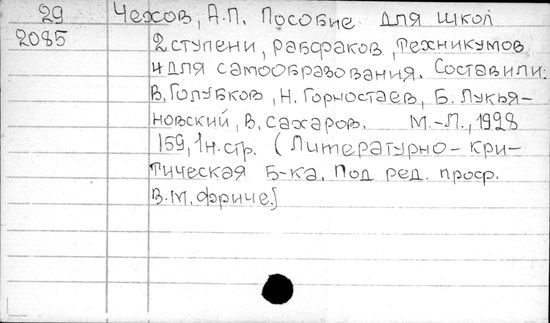 29 Чехов, А.П. Пособие для школ
2085 2 ступени, рабфаков, техникумов
и для самообразования. Составили:
В. Голубков, Н. Горностаев, Б. Лукья-
новский, В. Сахаров. М.-Л., 1928
159, 1 н. стр. (Литературно-кри-
тическая б-ка. Под ред. проф.
В.М. Фриче.)